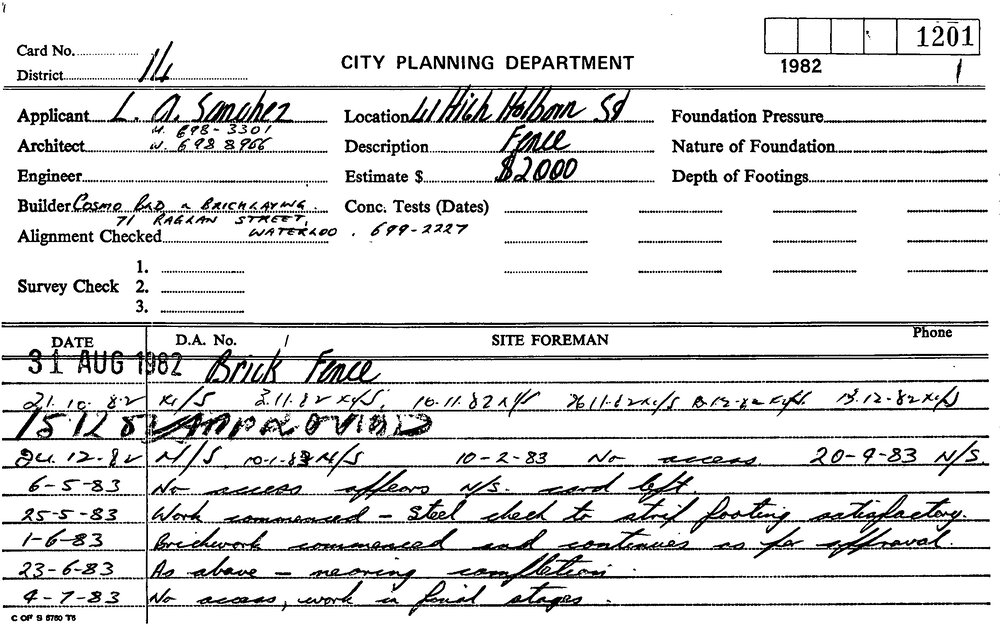 Card No.
1201
District 14
CITY PLANNING DEPARTMENT
1982
1
Applicant L. A. Sanchez
Location 41 High Holborn St
Foundation Pressure
H. 698-3301
Architect W. 698 8966
Description Fence
Nature of Foundation
Engineer
Estimate $ $2000
Depth of Footings
Builder Cosmo BLD & BRICKLAYING.
Conc. Tests (Dates)
71 RAGLAN STREET,
Alignment Checked WATERLOO. 699-2227
1.
Survey Check 2.
3.
DATE D.A. No. / SITE FOREMAN Phone
31 AUG 1982 Brick Fence
21.10.82 N/S 2.11.82 N/S, 10.11.82 N/S 26.11.82 N/S 8.12.82 N/S. 13.12.82 N/S
15 12 82 APPROVED
24.12.82 N/S 10-1-83 N/S 10-2-83 No access. 20-4-83 N/S.
6-5-83 No access appears N/S. card left
25-5-83 Work commenced - Steel check to strip footing satisfactory.
1-6-83 Brickwork commenced and continues as per approval.
23-6-83 As above - nearing completion.
4-7-83 No access, work in final stages.
C OF S 5760 T5